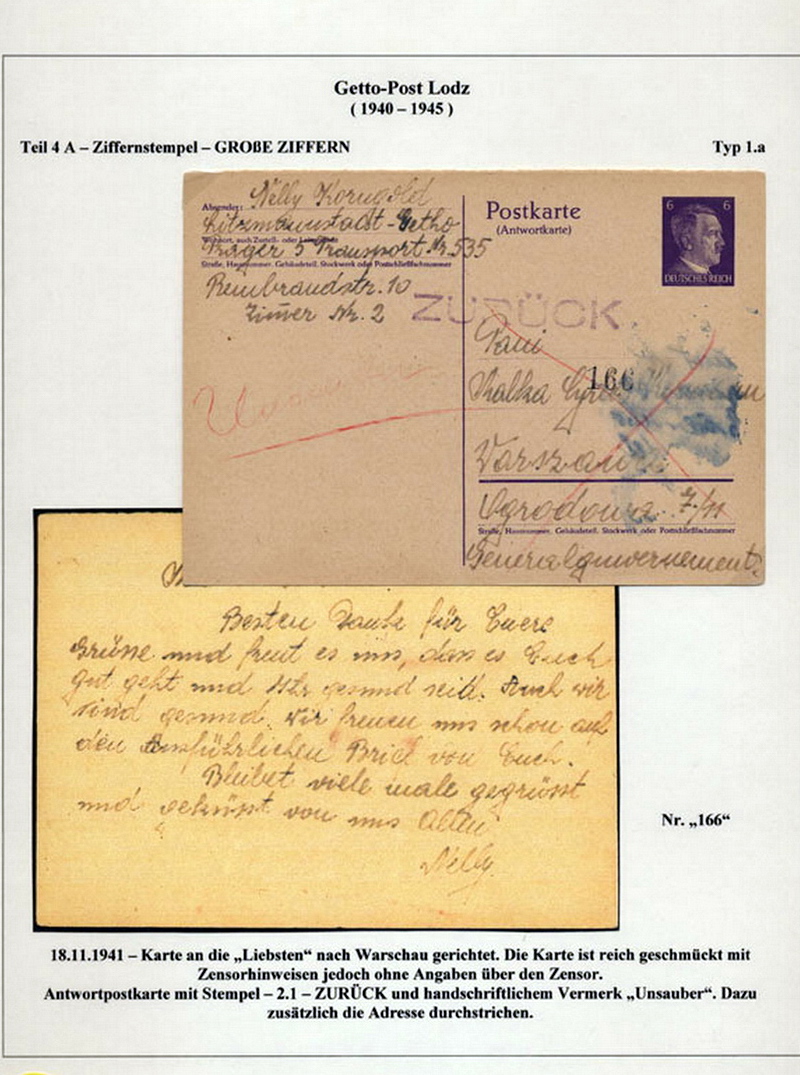 Getto-Post Lodz
( 1940 – 1945 )
Teil 4 A – Ziffernstempel – GROßE ZIFFERN
Typ 1.a
Absender: Nelly Korngold
Litzmannstadt-Getho
Wohnort, auch Zustell- oder
Prager 5 Transport Nr. 535
Straße, Hausnummer, Gebäudeteil, Stockwerk oder Postschließfachnummer
Rembrandstr. 10
Zimer Nr. 2
Postkarte
(Antwortkarte)
6 6
DEUTSCHES REICH
ZURÜCK
Pani
166
Warszawa
Ogrodowa 7/11
Straße, Hausnummer, Gebäudeteil, Stockwerk oder Postschließfachnummer
Generalgouvernement
Besten Dank für Euere
Grüsse und freut es uns, dass es Euch
gut geht und Ihr gesund seid. Auch wir
sind gesund. Wir freuen uns schon auf
den Ausführlichen Brief von Euch.
Bleibet viele male gegrüsst
und geküsst von uns Allen
Nelly
Nr. „166“
18.11.1941 – Karte an die „Liebsten“ nach Warschau gerichtet. Die Karte ist reich geschmückt mit
Zensorhinweisen jedoch ohne Angaben über den Zensor.
Antwortpostkarte mit Stempel – 2.1 – ZURÜCK und handschriftlichem Vermerk „Unsauber“. Dazu
zusätzlich die Adresse durchstrichen.